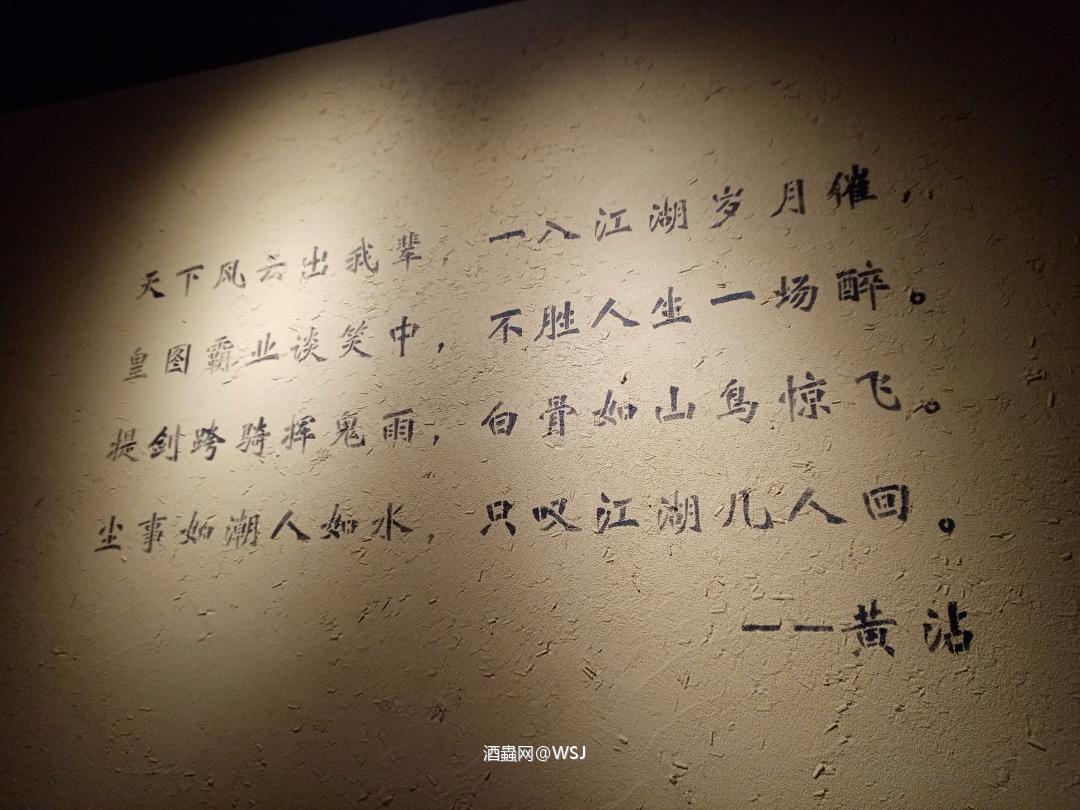 天下风云出我辈，一入江湖岁月催，
皇图霸业谈笑中，不胜人生一场醉。
提剑跨骑挥鬼雨，白骨如山鸟惊飞。
尘事如潮人如水，只叹江湖几人回。
——黄沾
酒蟲网@WSJ